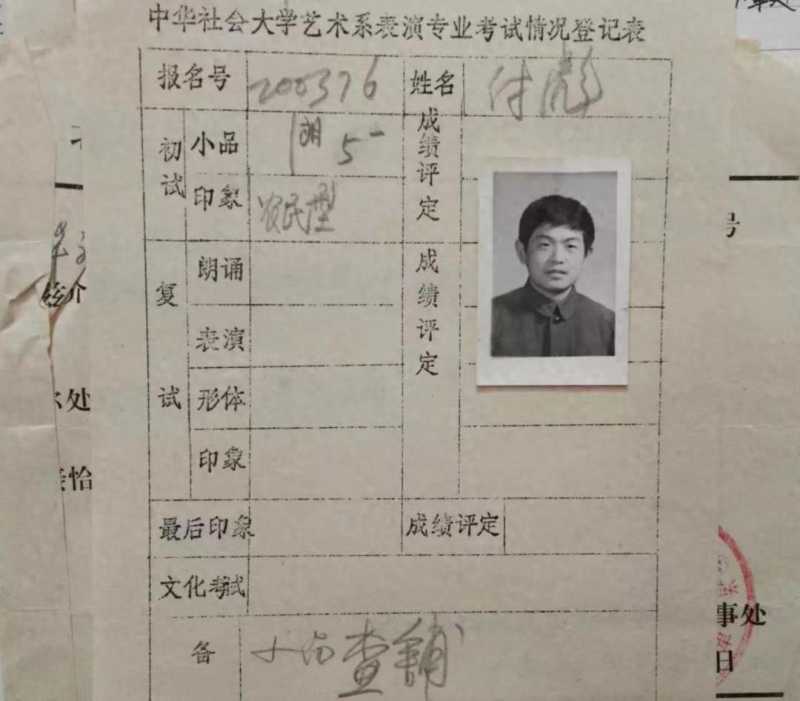 中华社会大学艺术系表演专业考试情况登记表
报名号 200376 姓名 付彪
初试 小品 朗 5一 成绩评定
印象 农民型
复试 朗诵 成绩评定
表演
形体
印象
最后印象 成绩评定
文化考试
备
号
介
处
恰
事处
日